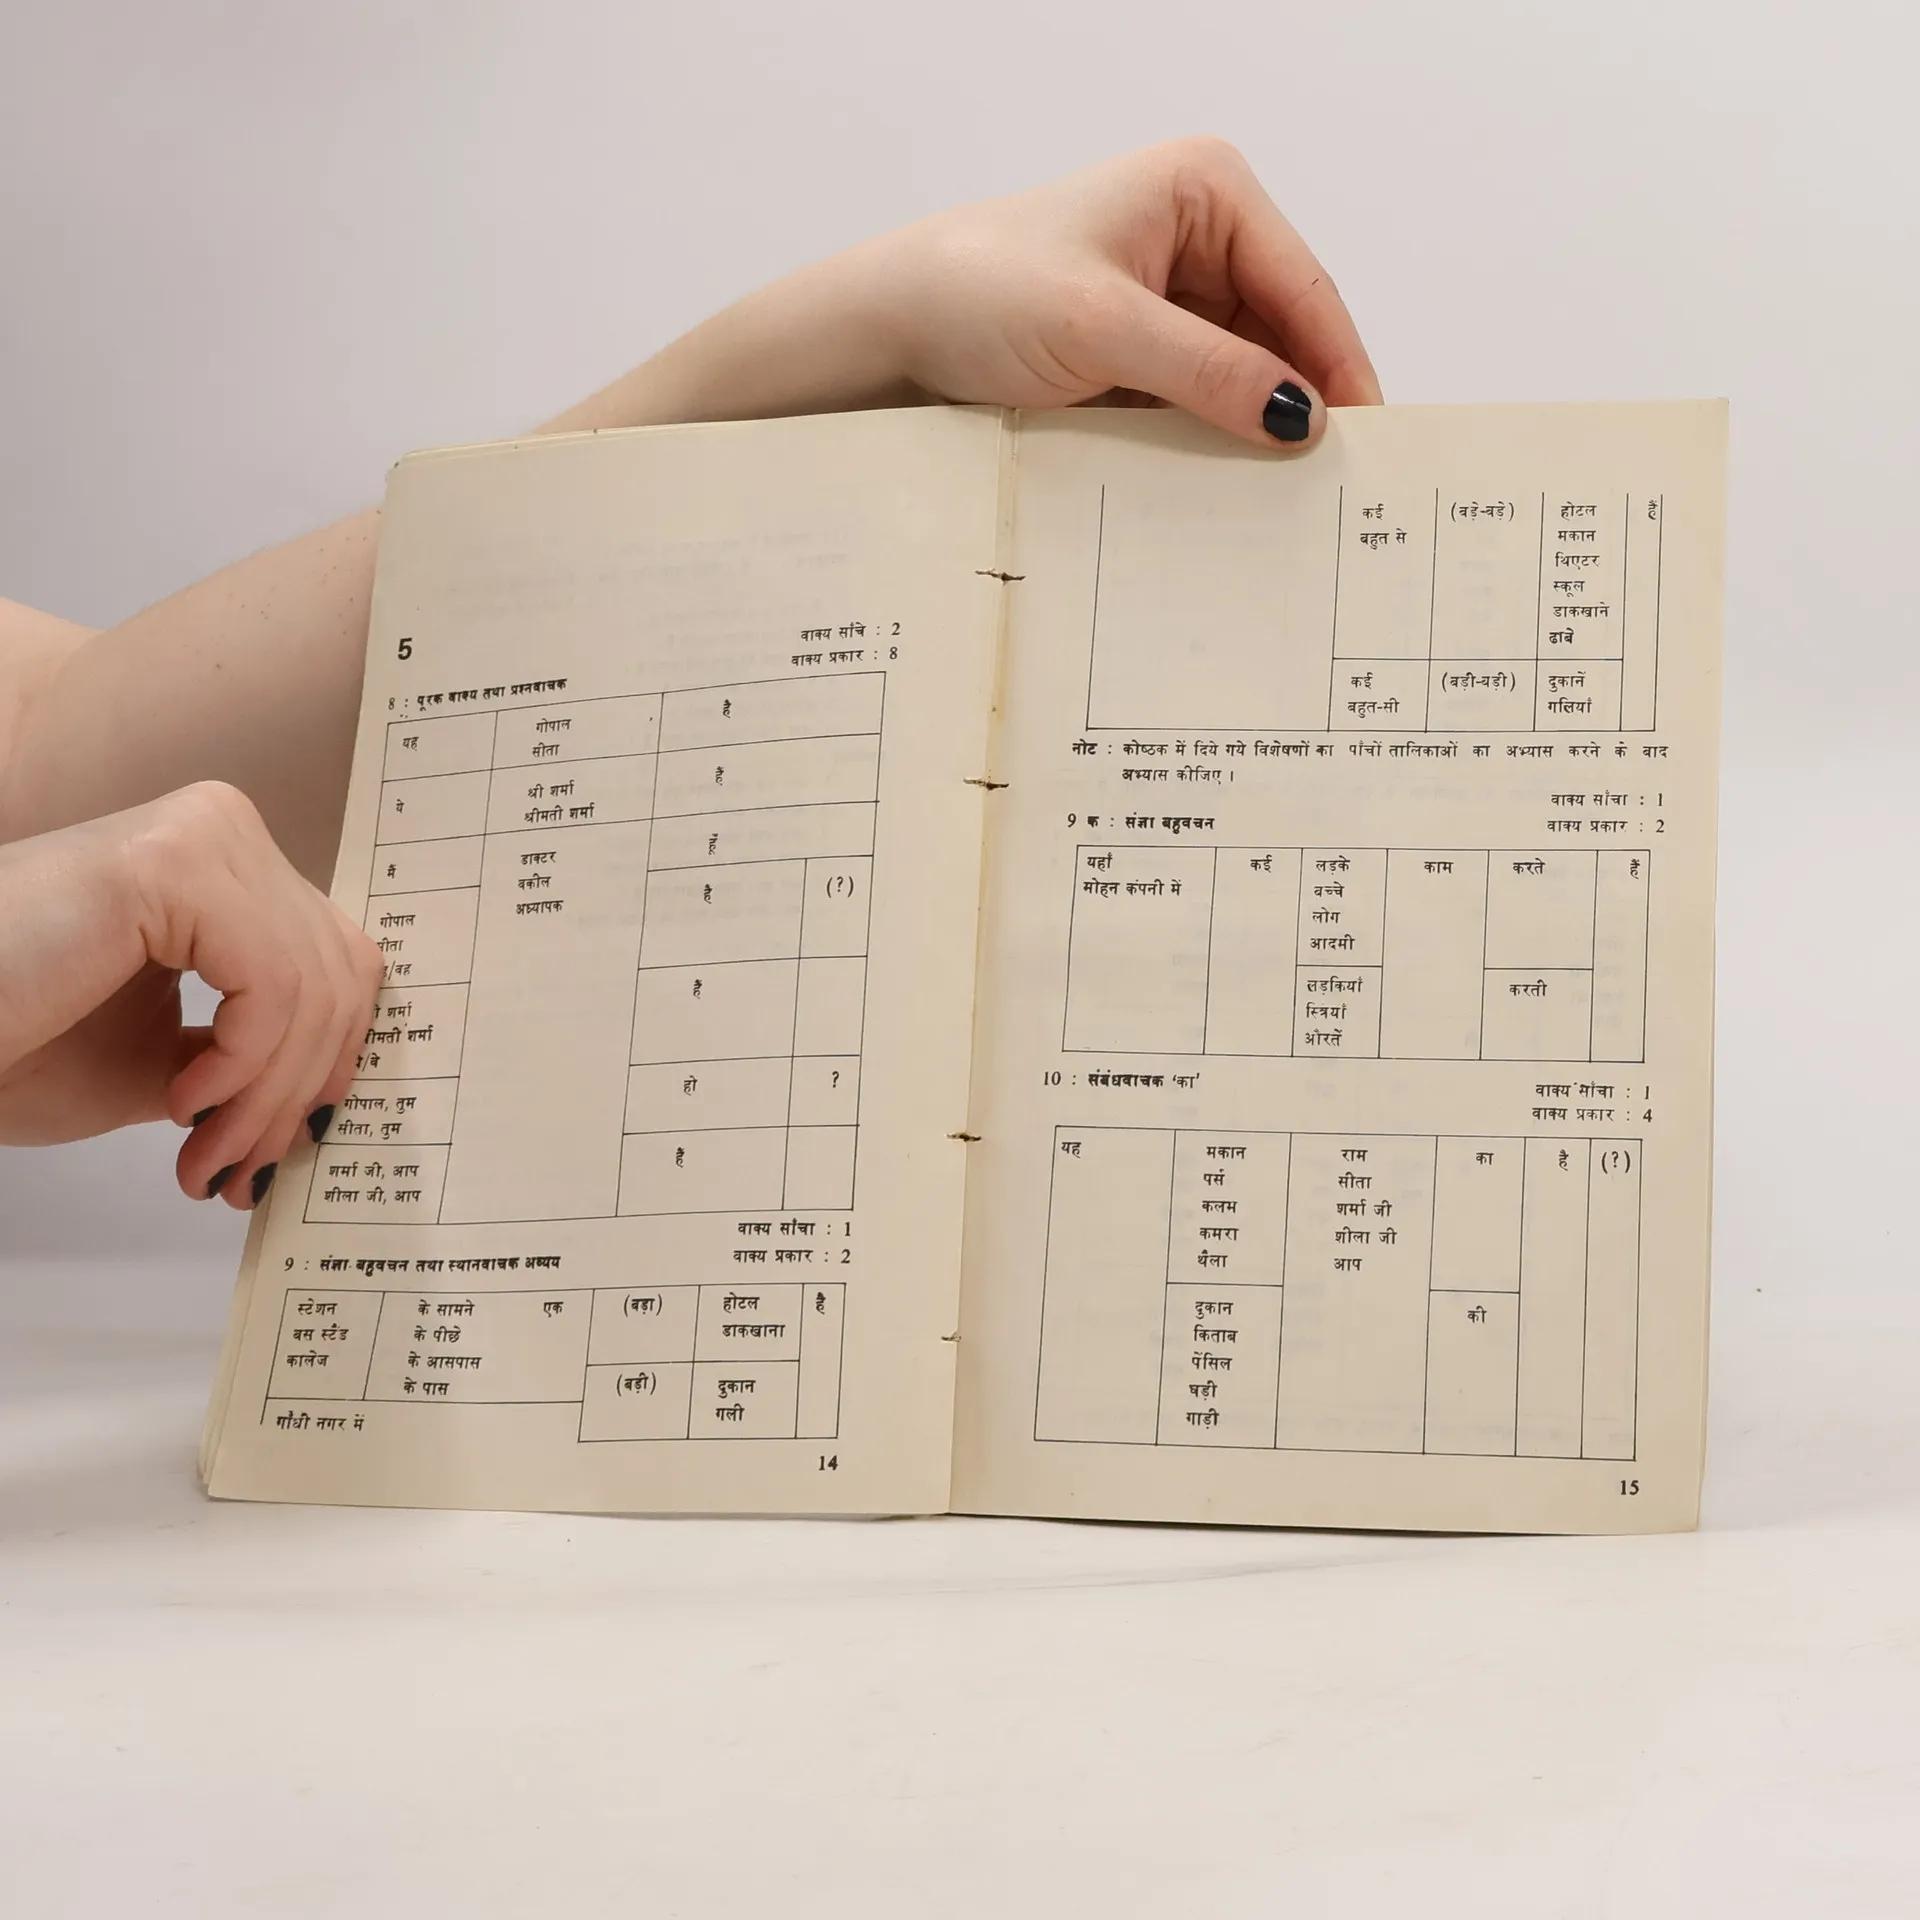 5
वाक्य साँचे : 2
वाक्य प्रकार : 8
8 : पूरक वाक्य तथा प्रश्नवाचक
यह गोपाल है
सीता
ये श्री शर्मा हैं
श्रीमती शर्मा
मैं डाक्टर हूँ
वकील है (?)
अध्यापक
गोपाल
सीता
/वह
शर्मा हैं
श्रीमती शर्मा
ये/वे
गोपाल, तुम हो ?
सीता, तुम
शर्मा जी, आप हैं
शीला जी, आप
वाक्य साँचा : 1
वाक्य प्रकार : 2
9 : संज्ञा बहुवचन तथा स्थानवाचक अव्यय
स्टेशन के सामने एक (बड़ा) होटल है
बस स्टैंड के पीछे डाकखाना
कालेज के आसपास
के पास (बड़ी) दुकान
गली
गाँधी नगर में
14
कई (बड़े-बड़े) होटल हैं
बहुत से मकान
थिएटर
स्कूल
डाकखाने
ढाबे
कई (बड़ी-बड़ी) दुकानें
बहुत-सी गलियाँ
नोट : कोष्ठक में दिये गये विशेषणों का पाँचों तालिकाओं का अभ्यास करने के बाद
अभ्यास कीजिए ।
वाक्य साँचा : 1
वाक्य प्रकार : 2
9 क : संज्ञा बहुवचन
यहाँ कई लड़के काम करते हैं
मोहन कंपनी में बच्चे
लोग
आदमी
लड़कियाँ करती
स्त्रियाँ
औरतें
10 : संबंधवाचक 'का'
वाक्य साँचा : 1
वाक्य प्रकार : 4
यह मकान राम का है (?)
पर्स सीता
कलम शर्मा जी
कमरा शीला जी
थैला आप
दुकान की
किताब
पेंसिल
घड़ी
गाड़ी
15